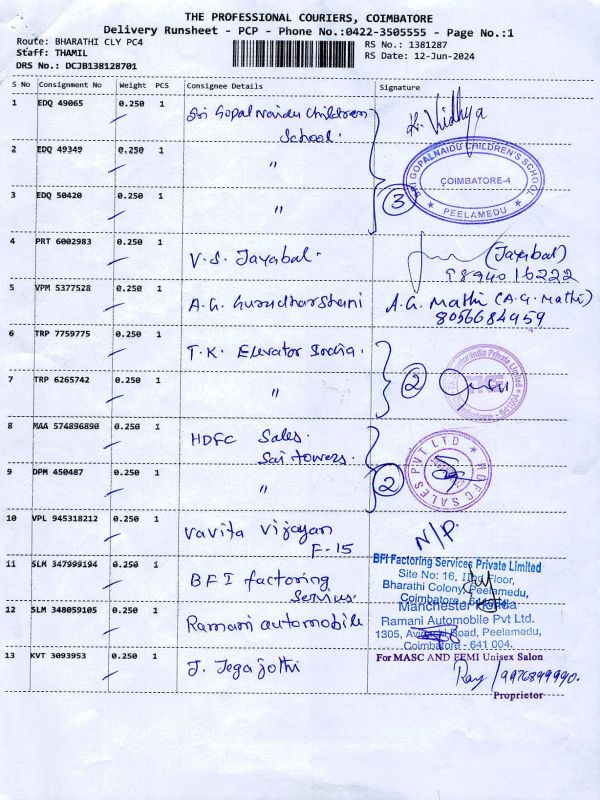 THE PROFESSIONAL COURIERS, COIMBATORE
Delivery Runsheet - PCP - Phone No.:0422-3505555 - Page No.:1
Route: BHARATHI CLY PC4
Staff: THAMIL
DRS No.: DCJB138128701
RS No.: 1381287
RS Date: 12-Jun-2024
S No Consignment No Weight PCS Consignee Details Signature
1 EDQ 49065 0.250 1 Sri Gopal Naidu Children School. K. Vidhya
2 EDQ 49349 0.250 1 "
SRI GOPALNAIDU CHILDREN'S SCHOOL
COIMBATORE-4
★ PEELAMEDU ★
3 EDQ 50420 0.250 1 " 3
4 PRT 6002983 0.250 1 V.S. Jayabal. (Jayabal)
9894016222
5 VPM 5377528 0.250 1 A.G. Gurudharshani A.G. Mathi (A.G. Mathi)
8056684959
6 TRP 7759775 0.250 1 T.K. Elevator India.
7 TRP 6265742 0.250 1 " 2
8 MAA 574896890 0.250 1 HDFC Sales.
Sai towers.
HDFC SALES PVT LTD
9 DPM 450487 0.250 1 " 2
10 VPL 945318212 0.250 1 Vavita Vijayan
F-15 N/P.
11 SLM 347999194 0.250 1 BFI factoring
Servius.
BFI Factoring Services Private Limited
Site No: 16, IInd Floor,
Bharathi Colony, Peelamedu,
Coimbatore
12 SLM 348059105 0.250 1 Ramani automobile
Manchester Honda
Ramani Automobile Pvt Ltd.
1305, Avinashi Road, Peelamedu,
Coimbatore - 641 004.
13 KVT 3093953 0.250 1 J. Jegajothi
For MASC AND FEMI Unisex Salon
/9976899990.
Proprietor